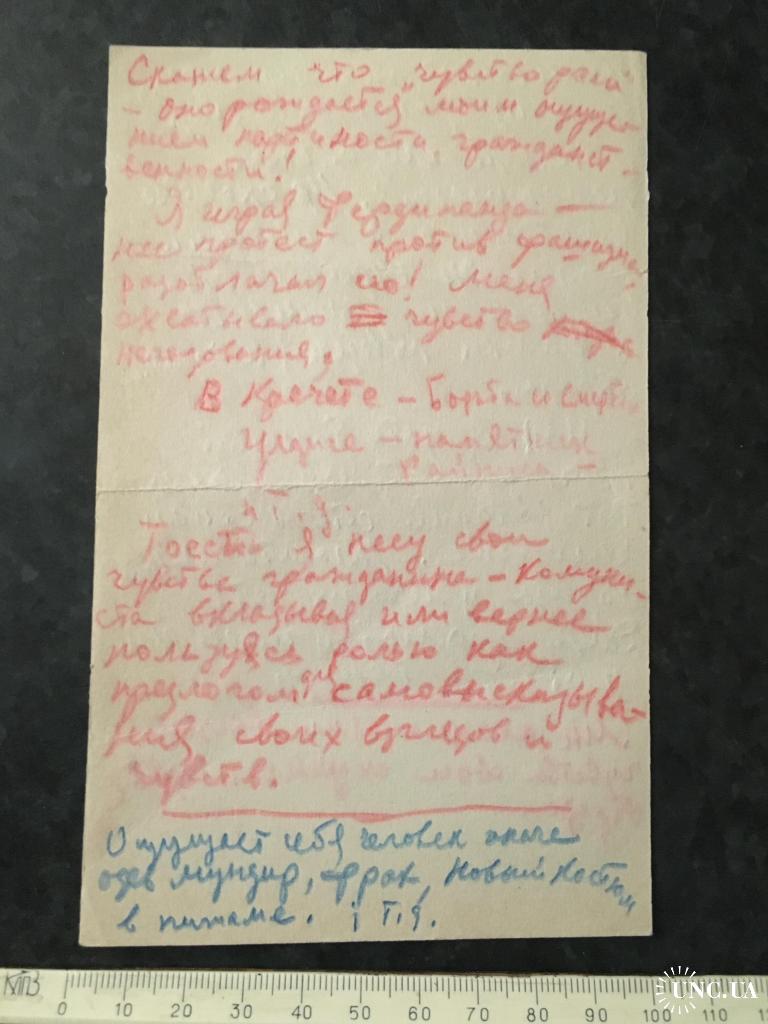 Скажем что "чувство расы"
- оно рождается моим ощуще-
нием партийности, гражданст-
венности!
Я играя Фердинанда —
нес протест против фашизма
разоблачал его! Меня
охватывало чувство
негодования,
В Кречете - борьба и
- памятник
и т. д.
Тоесть я несу свои
чувства гражданина - комуни-
ста вкладывая или вернее
пользуясь ролью как
предлогом для самовысказыва-
ния своих взглядов и
чувств.
Ощущает себя человек иначе
одев мундир, фрак, новый костюм
в пижаме. і т.д.
КТПЗ
0 10 20 30 40 50 60 70 80 90 100 110
UNC.UA